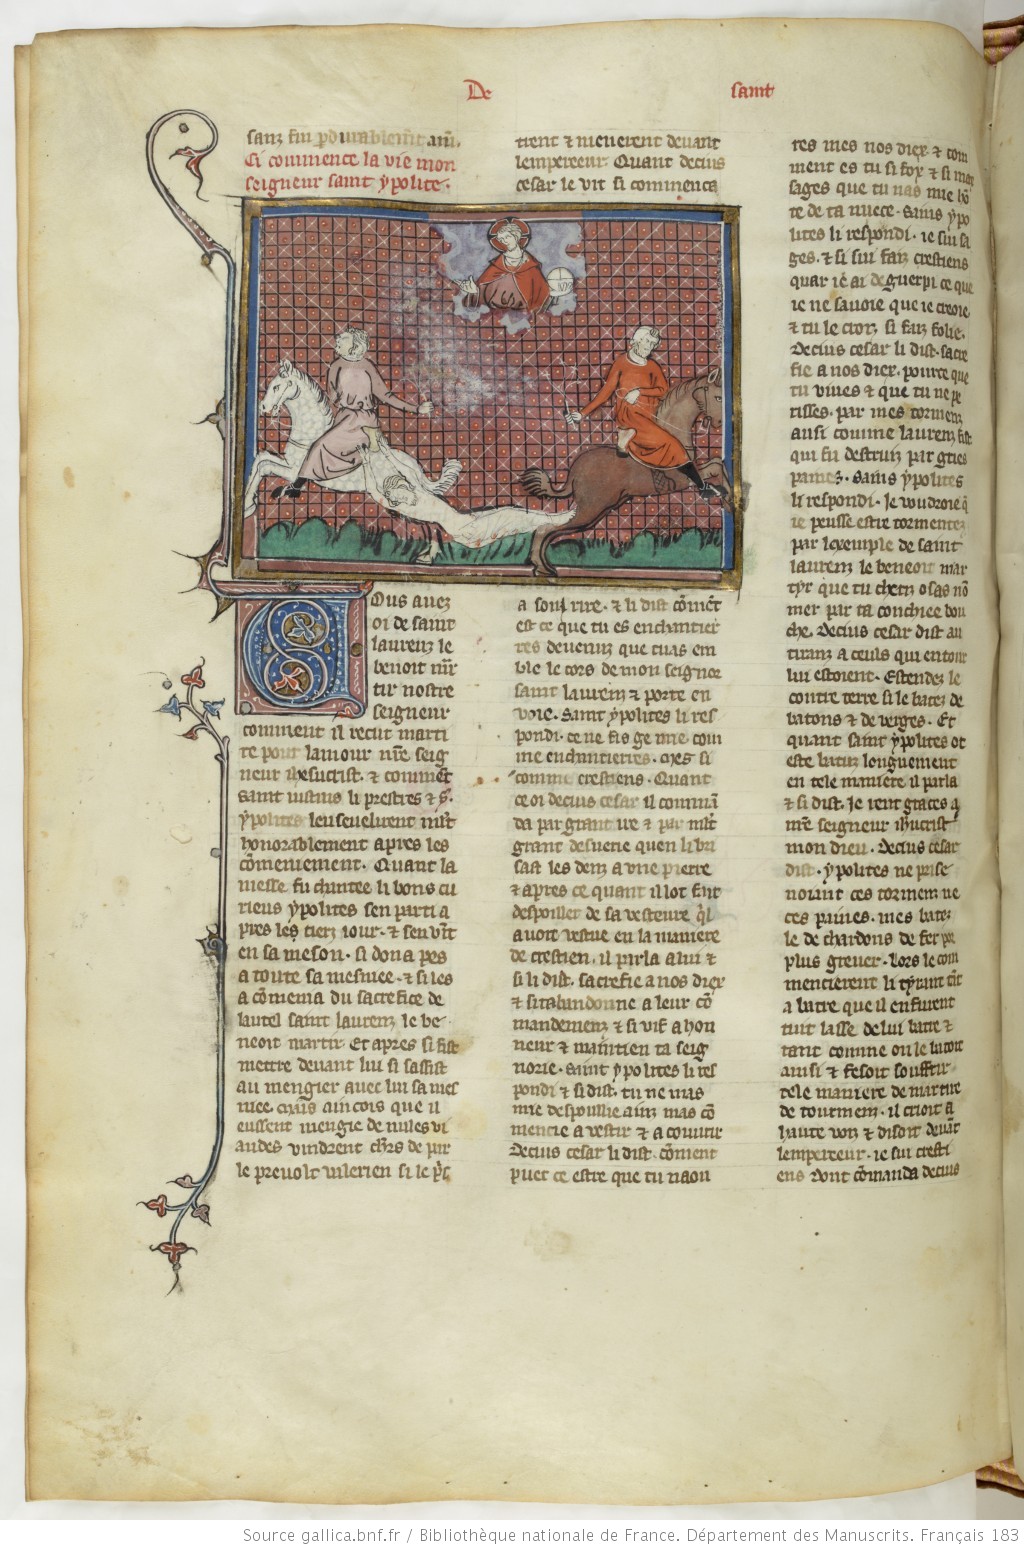 De saint
sanz fin pdurablemt am̄.
Ci commence la vie mon
seigneur saint ypolite.
Ous auez
oi de saint
laurenz le
benoit mr
tir nostre
seigneur
comment il recut marti
re pour lamour nr̄e seig
neur ih̄esucrist. & commēt
saint iustins li prestres & s.
ypolites lenseuelirent mlt
honorablement apres les
cōmeniement. Quant la
messe fu chantee li bons cu
rieus ypolites sen parti a
pres les tierz iour. & sen vīt
en sa meson. si dona pes
a toute sa mesniee. & si les
a cōmenia du sacrefice de
lautel saint laurenz le be
neoit martir. Et apres si fist
mettre deuant lui si sassist
au mengier auec lui sa mes
niee. mais aincois que il
eussent mengie de nules vi
andes vindrent chrs de par
le preuost valerien si le pris
trent & menerent deuant
lempereeur. Quant decius
cesar le vit si commenca
a sousrire. & li dist cōmēt
est ce que tu es enchantier
res deuenuz que tu as em
ble le cors de mon seignor
saint laurenz & porte en
voie. Saint ypolites li res
pondi. ce ne fis ge mie com
me enchantierres. mes si
comme crestiens. Quant
ce oi decius cesar il comm̄
da par grant ire & par mlt
grant desuerie quen li bri
sast les denz a vne pierre
& apres ce quant il lot fait
despoillier de sa vesteure ql
auoit vestue en la maniere
de crestien. il parla a lui &
si li dist. sacrefie a nos diex
& si tabandonne a leur cō
mandemenz & si vif a hon
neur & maintien ta seig
norie. Saint ypolites li res
pondi & si dist. tu ne mas
mie despoillie ainz mas cō
mencie a vestir & a couurir
Decius cesar li dist. cōment
puet ce estre que tu naou
res mes nos diex. & com
ment es tu si fox & si mes
sages que tu nas mie hō
te de ta nuece. Sains ypo
lites li respondi. ie sui sa
ges. & si sui faiz crestiens
quar ie ai deguerpi ce que
ie ne sauoie que ie creoie
& tu le croiz si faiz folie.
Decius cesar li dist. sacre
fie a nos diex. pource que
tu viues & que tu ne pe
risses. par mes tormenz
ausi comme laurenz fist
qui fu destruiz par gries
painez. Sains ypolites
li respondi. Je voudroie q
ie peusse estre tormentez
par lexemple de saint
laurenz le beneoit mar
tyr que tu chetiz osas nō
mer par ta conchiee bou
che. Decius cesar dist au
tiranz a ceuls qui entour
lui estoient. Estendez le
contre terre si le batez de
batons & de verges. Et
quant saint ypolites ot
este batuz longuement
en tele maniere il parla
& si dist. Je rent graces a
mr̄e seigneur ih̄ucrist
mon dieu. Decius cesar
dist. ypolites ne prise
noiant ces tormenz ne
ces paines. mes batez
le de chardons de fer por
plus greuer. Lors le com
mencierent li tyrant tāt
a batre que il en furent
tuit lasse de lui batre &
tant comme on le batoit
ainsi & fesoit souffrir
tele maniere de martire
de tourment. il crioit a
haute voiz & disoit deuāt
lempereeur. ie sui cresti
ens dont cōmanda decius
Source gallica.bnf.fr / Bibliothèque nationale de France. Département des Manuscrits. Français 183